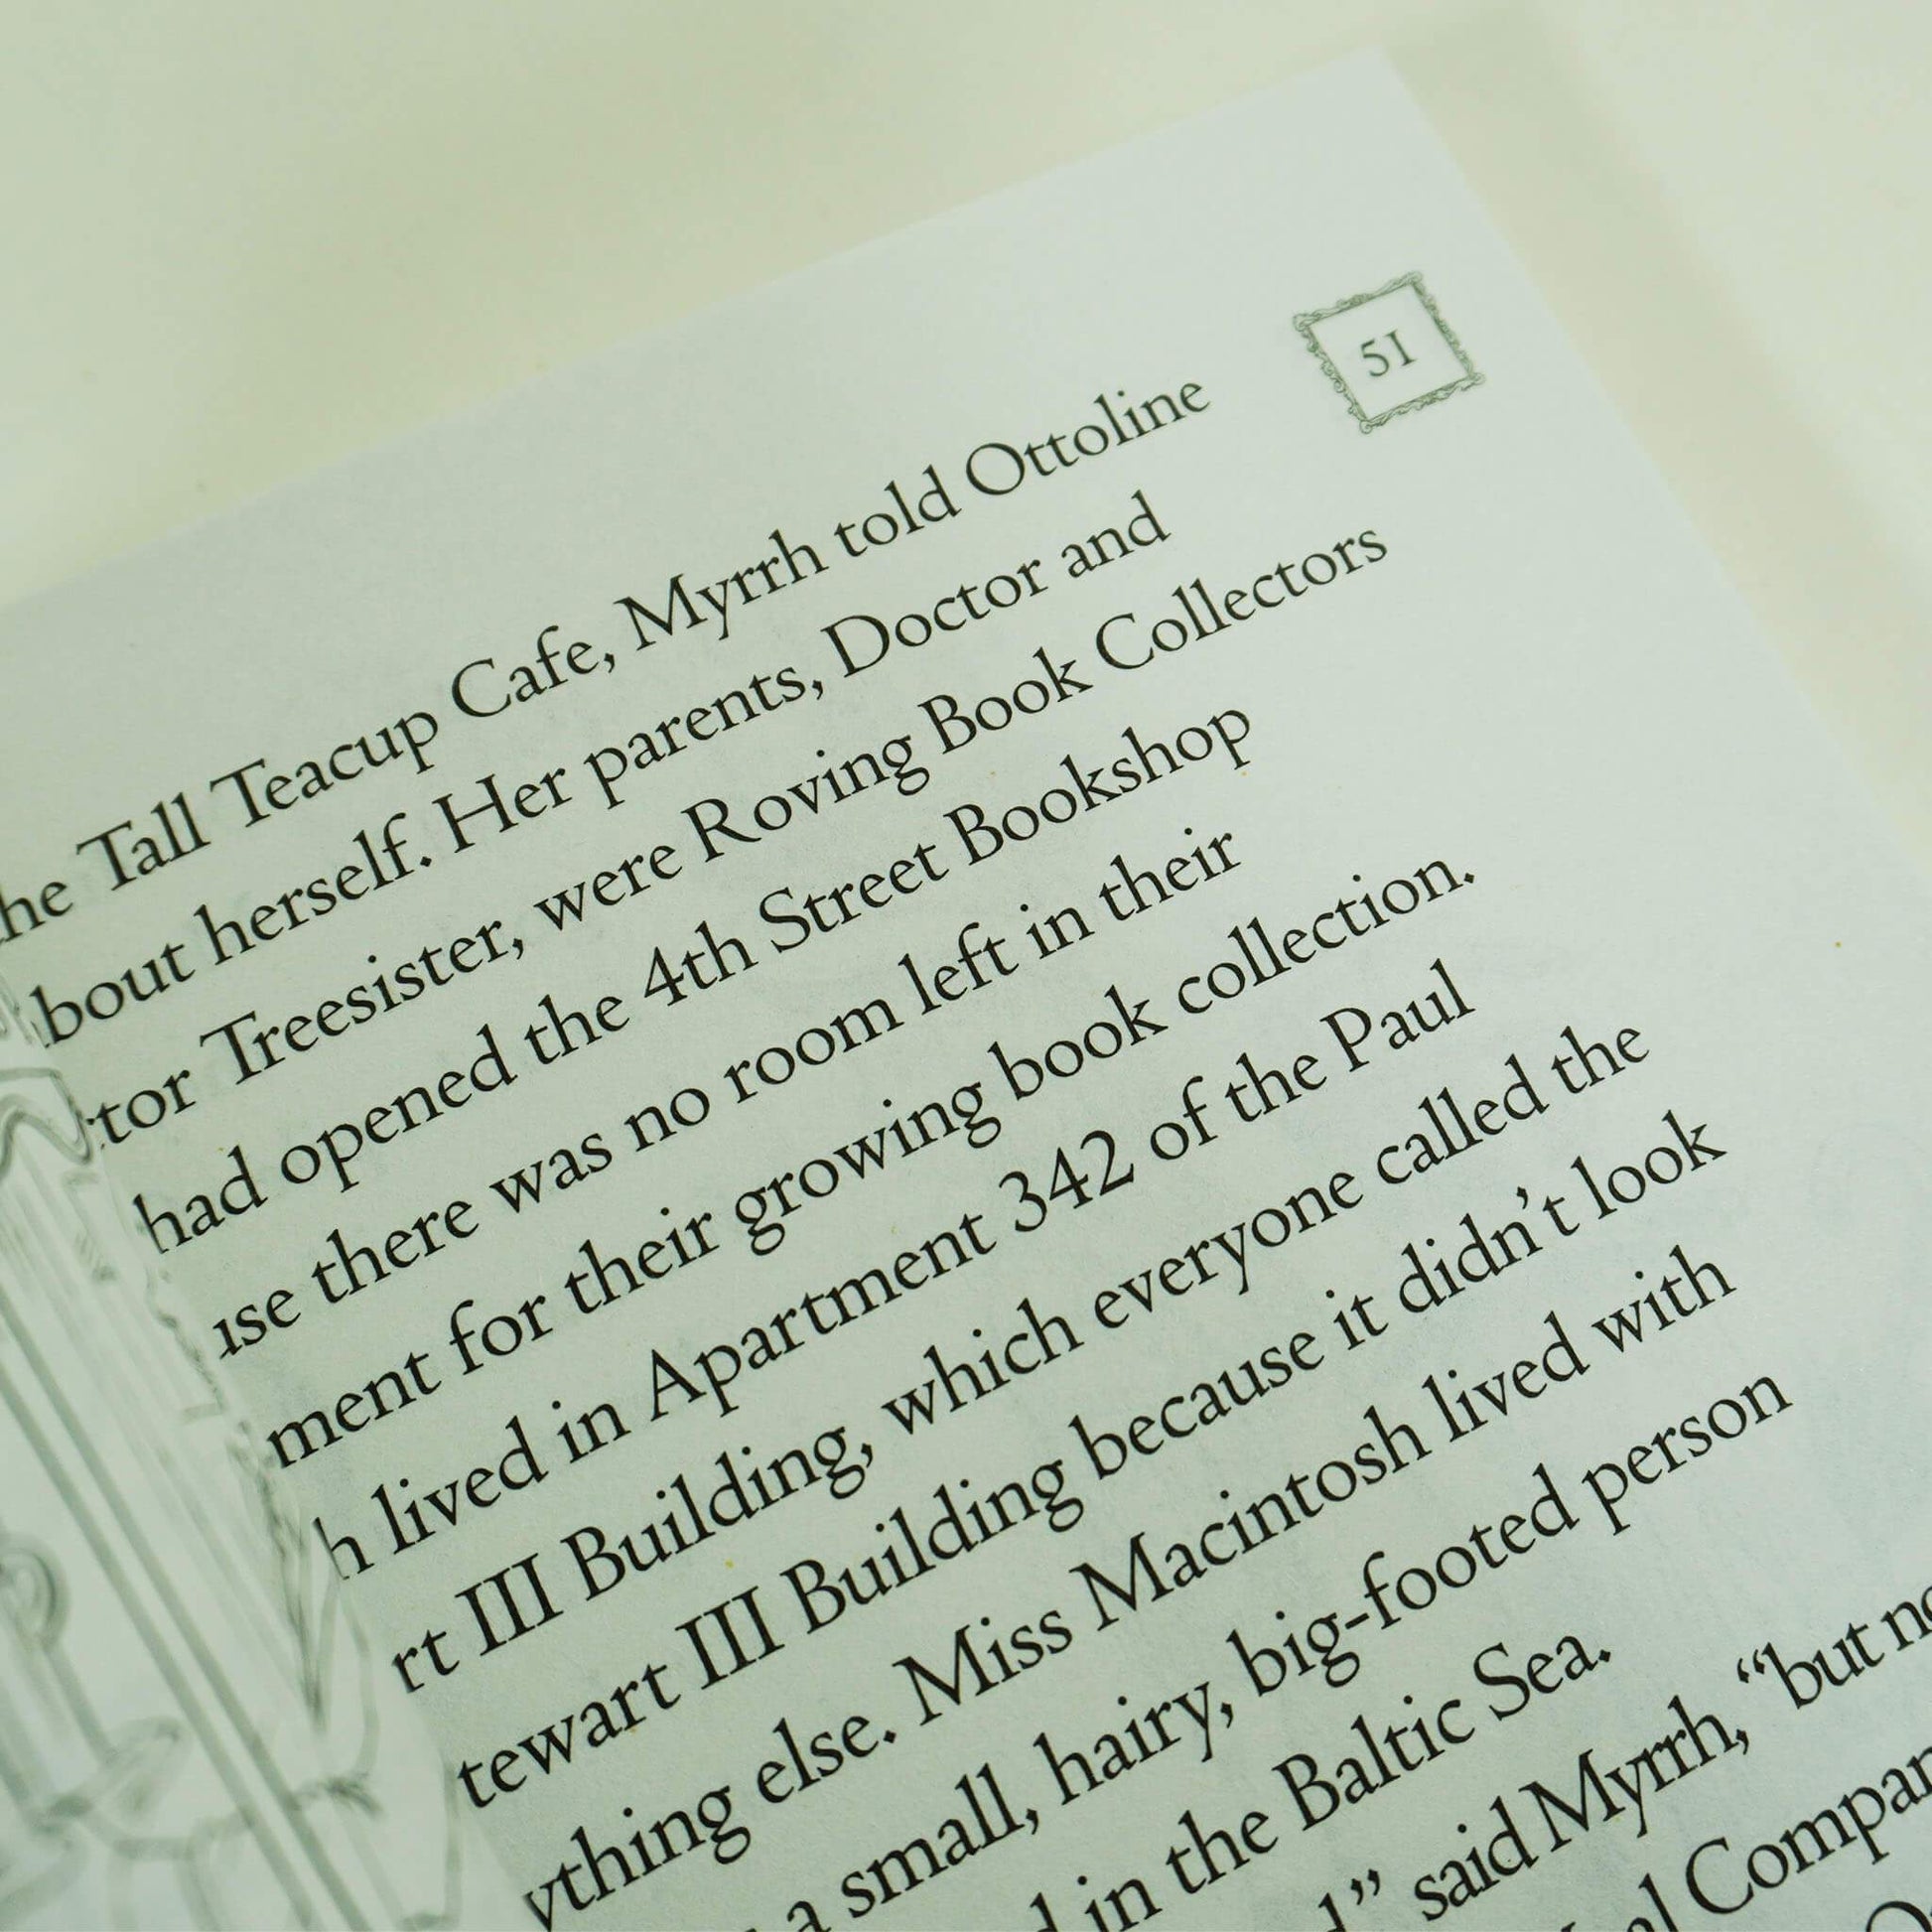 51
he Tall Teacup Cafe, Myrrh told Ottoline
bout herself. Her parents, Doctor and
tor Treesister, were Roving Book Collectors
had opened the 4th Street Bookshop
ise there was no room left in their
ment for their growing book collection.
h lived in Apartment 342 of the Paul
rt III Building, which everyone called the
tewart III Building because it didn't look
ything else. Miss Macintosh lived with
a small, hairy, big-footed person
in the Baltic Sea.
" said Myrrh, "but
Compan